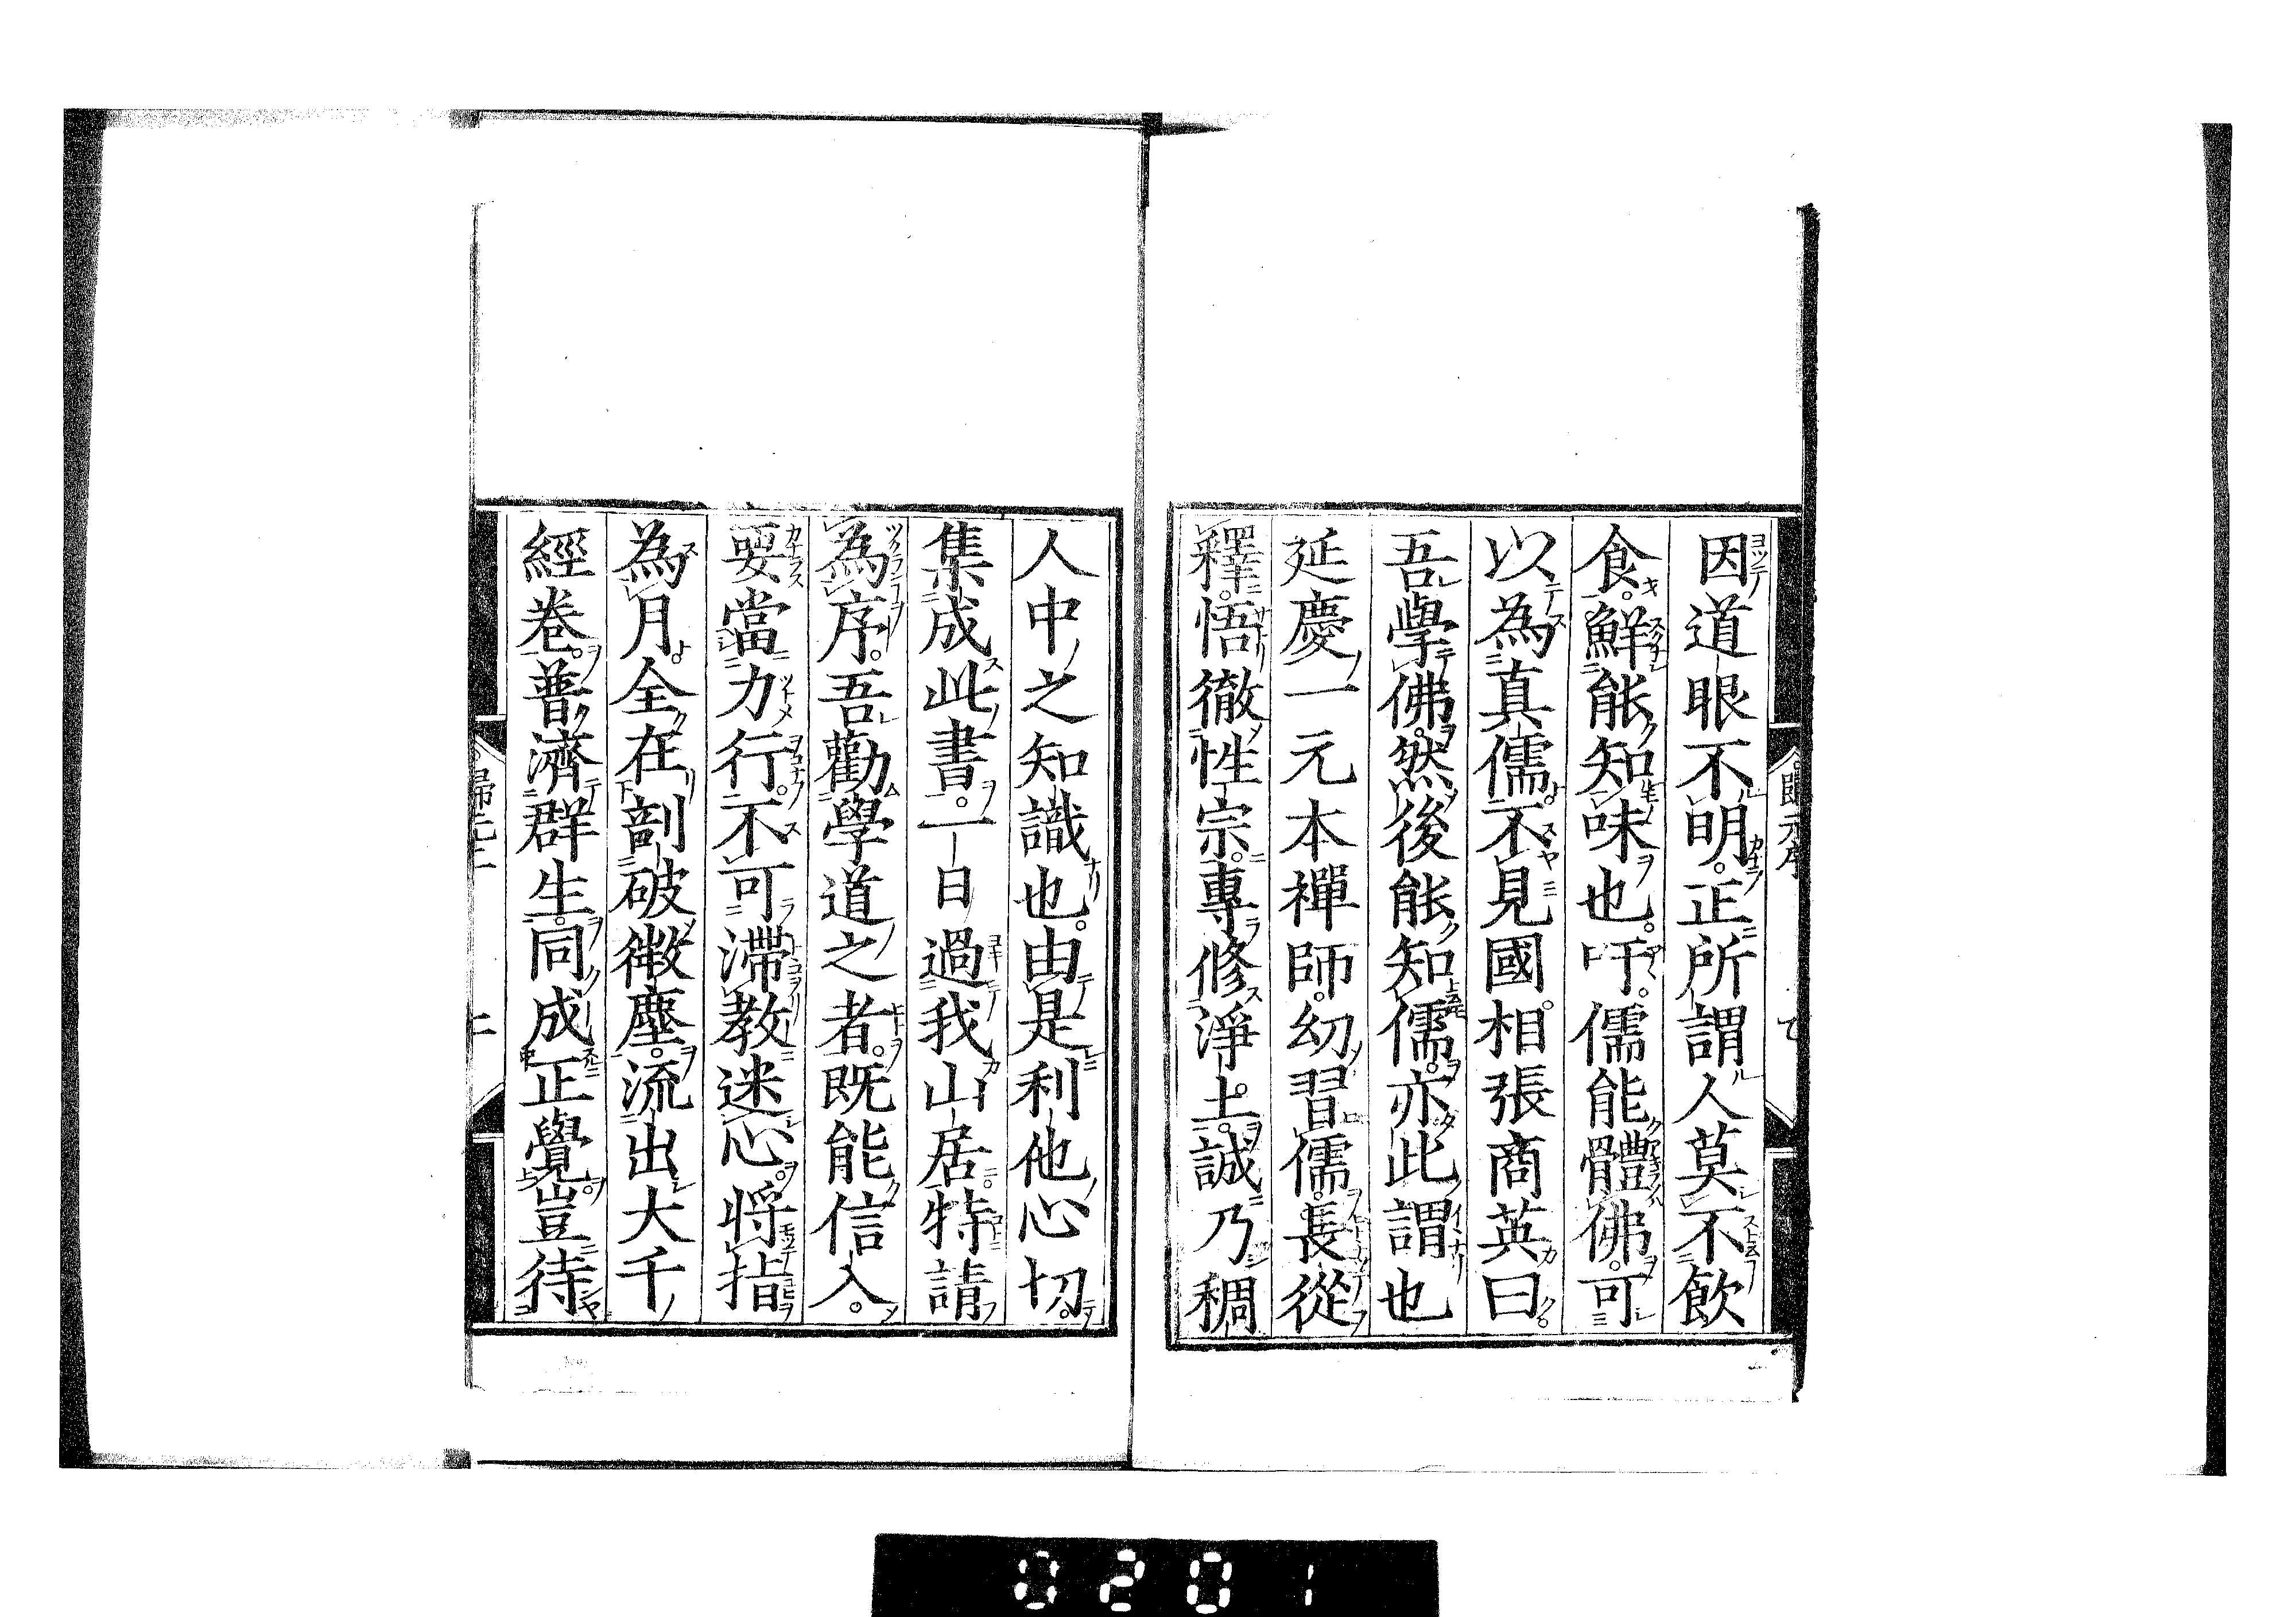 因道眼不明。正所謂人莫不飲
食。鮮能知味也。吁。儒能體佛。可
以為真儒。不見國相張商英曰。
吾學佛。然後能知儒。亦此謂也
延慶一元本禪師。幻習儒。長從
釋。悟徹性宗。專修淨土。誠乃稠
人中之知識也。由是利他心切。
集成此書。一日過我山居。特請
為序。吾勸學道之者。既能信入。
要當力行。不可滯教迷心。將指
為月。全在剖破微塵。流出大千
經卷。普濟群生。同成正覺。豈待
歸元
二
0201